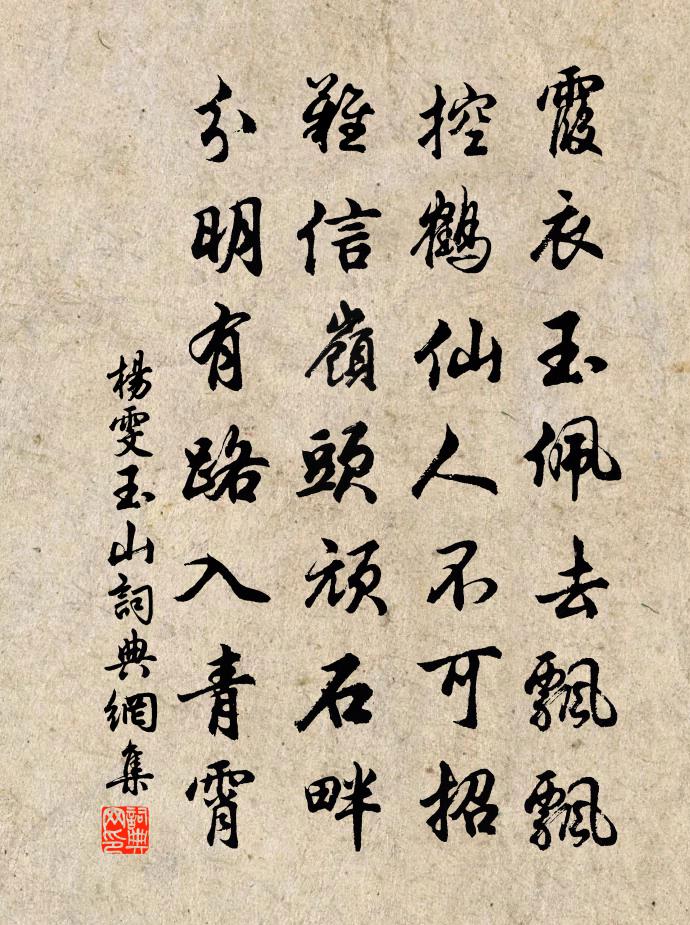 霞衣玉佩去飄飄
控鶴仙人不可招
難信嶺頭頑石畔
分明有路入青霄
楊雯玉山詞典網集
詞典网印